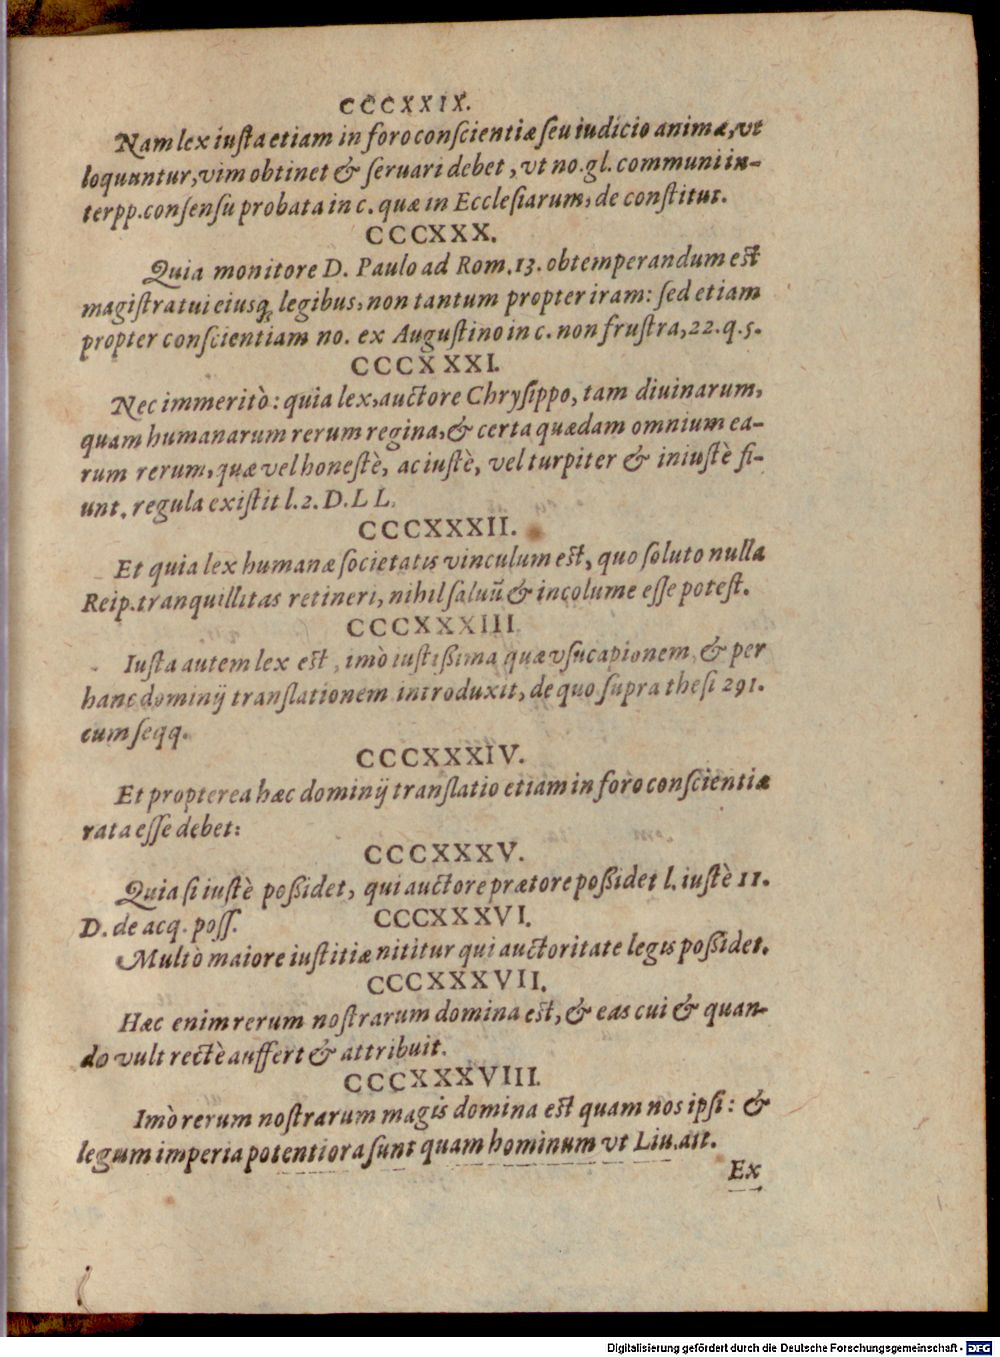 CCCXXIX.
Nam lex iusta etiam in foro conscientiæ seu iudicio animæ, vt
loquuntur, vim obtinet & seruari debet, vt no. gl. communi in-
terpp. consensu probata in c. quæ in Ecclesiarum, de constitut.
CCCXXX.
Quia monitore D. Paulo ad Rom. 13. obtemperandum est
magistratui eiusq; legibus, non tantum propter iram: sed etiam
propter conscientiam no. ex Augustino in c. non frustra, 22. q. 5.
CCCXXXI.
Nec immeritò: quia lex, auctore Chrysippo, tam diuinarum,
quam humanarum rerum regina, & certa quædam omnium ea-
rum rerum, quæ vel honestè, ac iustè, vel turpiter & iniustè fi-
unt, regula existit l. 2. D. L L.
CCCXXXII.
Et quia lex humanæ societatis vinculum est, quo soluto nulla
Reip. tranquillitas retineri, nihil saluũ & incolume esse potest.
CCCXXXIII.
Iusta autem lex est, imò iustißima quæ vsucapionem, & per
hanc dominij translationem introduxit, de quo supra thesi 291.
cum seqq.
CCCXXXIV.
Et propterea hæc dominij translatio etiam in foro conscientiæ
rata esse debet:
CCCXXXV.
Quia si iustè poßidet, qui auctore prætore poßidet l. iustè 11.
D. de acq. poss.
CCCXXXVI.
Multò maiore iustitiæ nititur qui auctoritate legis poßidet.
CCCXXXVII.
Hæc enim rerum nostrarum domina est, & eas cui & quan-
do vult rectè auffert & attribuit.
CCCXXXVIII.
Imò rerum nostrarum magis domina est quam nos ipsi: &
legum imperia potentiora sunt quam hominum vt Liu. ait.
Ex
Digitalisierung gefördert durch die Deutsche Forschungsgemeinschaft - DFG